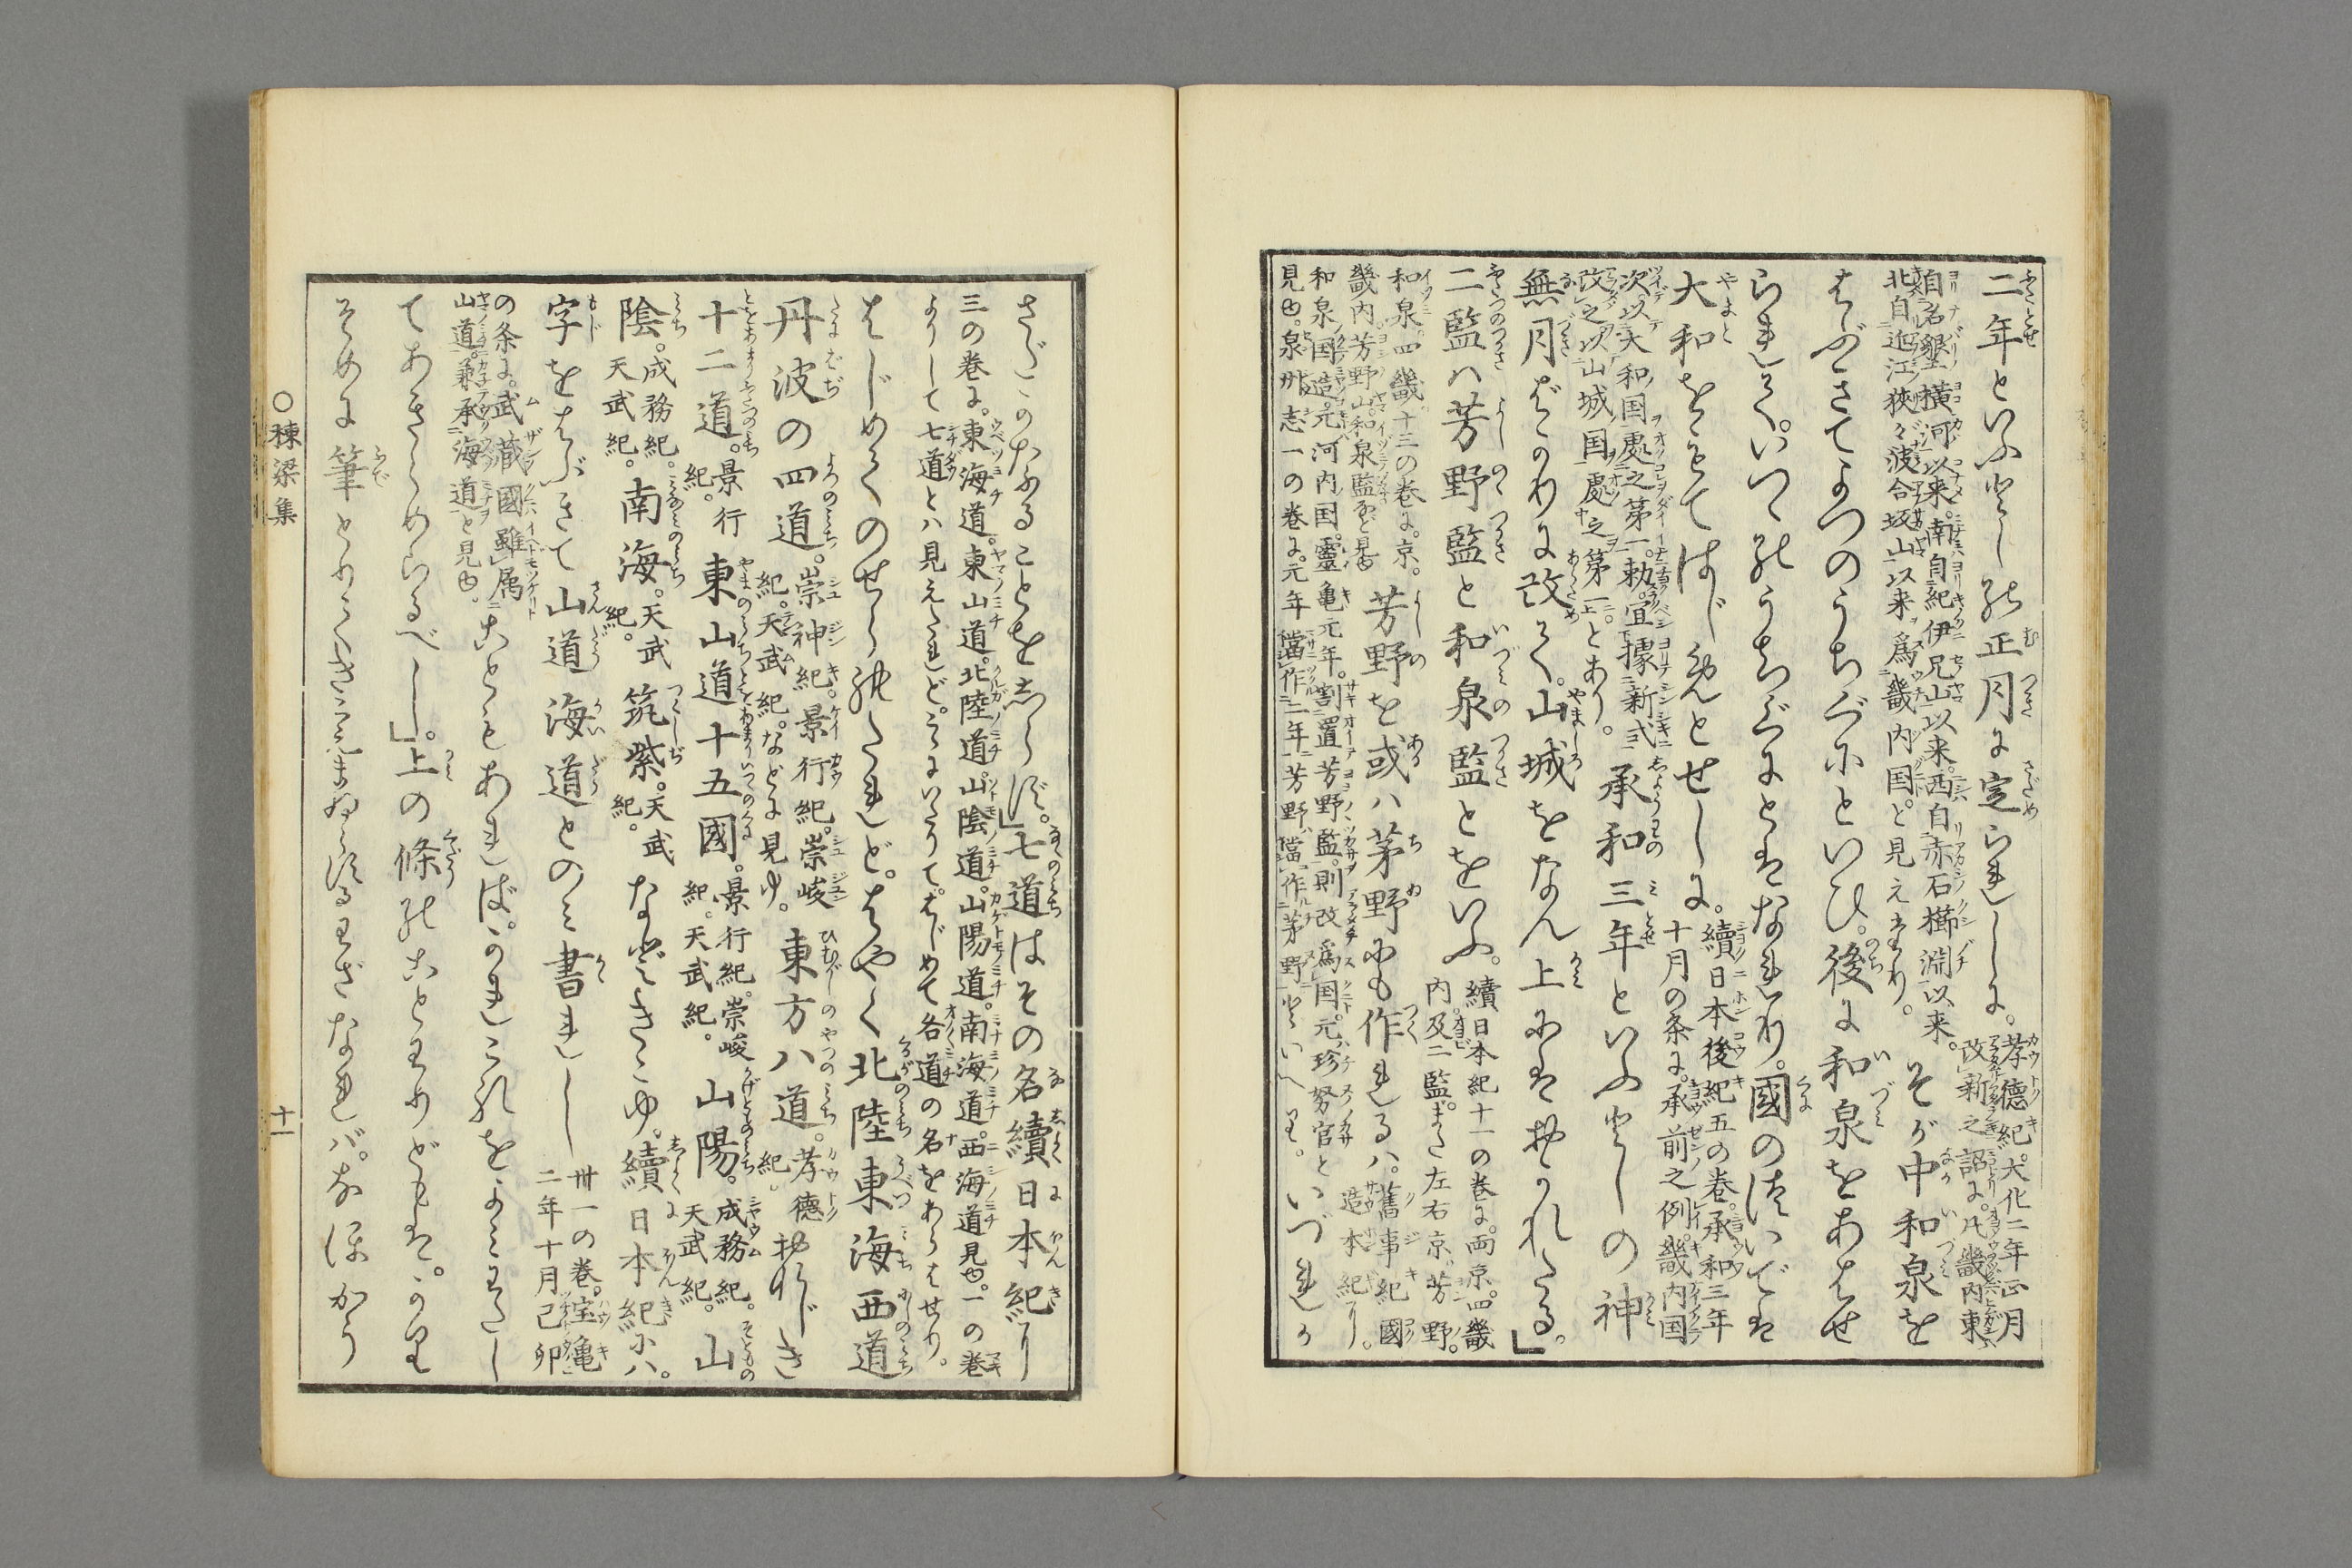 二年といふとしの正月に定られしに。孝徳紀。大化二年正月
改新之詔に。凡畿内東
自名墾横河以来。南自紀伊兄山以来。西自赤石櫛淵以来。
北自近江狭々波合坂山以来為畿内国。と見えたり。そが中和泉を
はぶきてよつのうちぐにといひ。後に和泉をあはせ
られて。いつゝのうちぐにとはなれりけり。國のついでは
大和をもてはじめとせしに。續日本後紀五の巻。承和三年
十月の条に。承前之例。畿内国
次。以大和国處之第一。勅。宜據新式
改之以山城国處之第一。とあり。承和三年といふとしの神
無月ばかりに改て。山城をなん上にはおかれたる。」
二監ハ芳野監と和泉監とをいふ。續日本紀十一の巻に。両京。四畿
内。及二監。また左右京。芳野。
和泉。四畿。十三の巻に。京。
畿内。芳野。和泉監など見ゆ。芳野を或ハ茅野にも作れるハ。舊事紀國
造本紀に。
和泉国造。元河内国。靈亀元年。割置芳野監。則改為国。元珍努官と
見ゆ。泉州志一の巻に。元年當作二年。芳野當作茅野。といへり。いづれか
さだかなることをしらず。」七道はその名續日本紀に
三の巻に。東海道。東山道。北陸道。山陰道。山陽道。南海道。西海道見ゆ。一の巻
よりして七道とハ見えたれど。こゝにいたりて。はじめて各道の名をあらはせり。
はじめてのせられたれど。はやく北陸東海西道
丹波の四道。崇神紀。景行紀。崇峻
紀。天武紀。などに見ゆ。東方八道。孝徳
紀。おなじき
十二道。景行
紀。東山道十五國。景行紀。崇峻
紀。天武紀。山陽。成務紀。
天武紀。山
陰。成務紀。
天武紀。南海。天武
紀。筑紫。天武
紀。などきこゆ。續日本紀にハ。
字をはぶきて山道海道とのミ書れし卅一の巻。宝亀
二年十月己卯
の条に。武藏國雖属
山道。兼承海道と見ゆ。こともあれば。かれこれをよミわたし
てあきらめらるべし。」上の條のことわりどもは。かり
そめに筆とりて
わざなれバ。なほかう
○棟梁集
十一